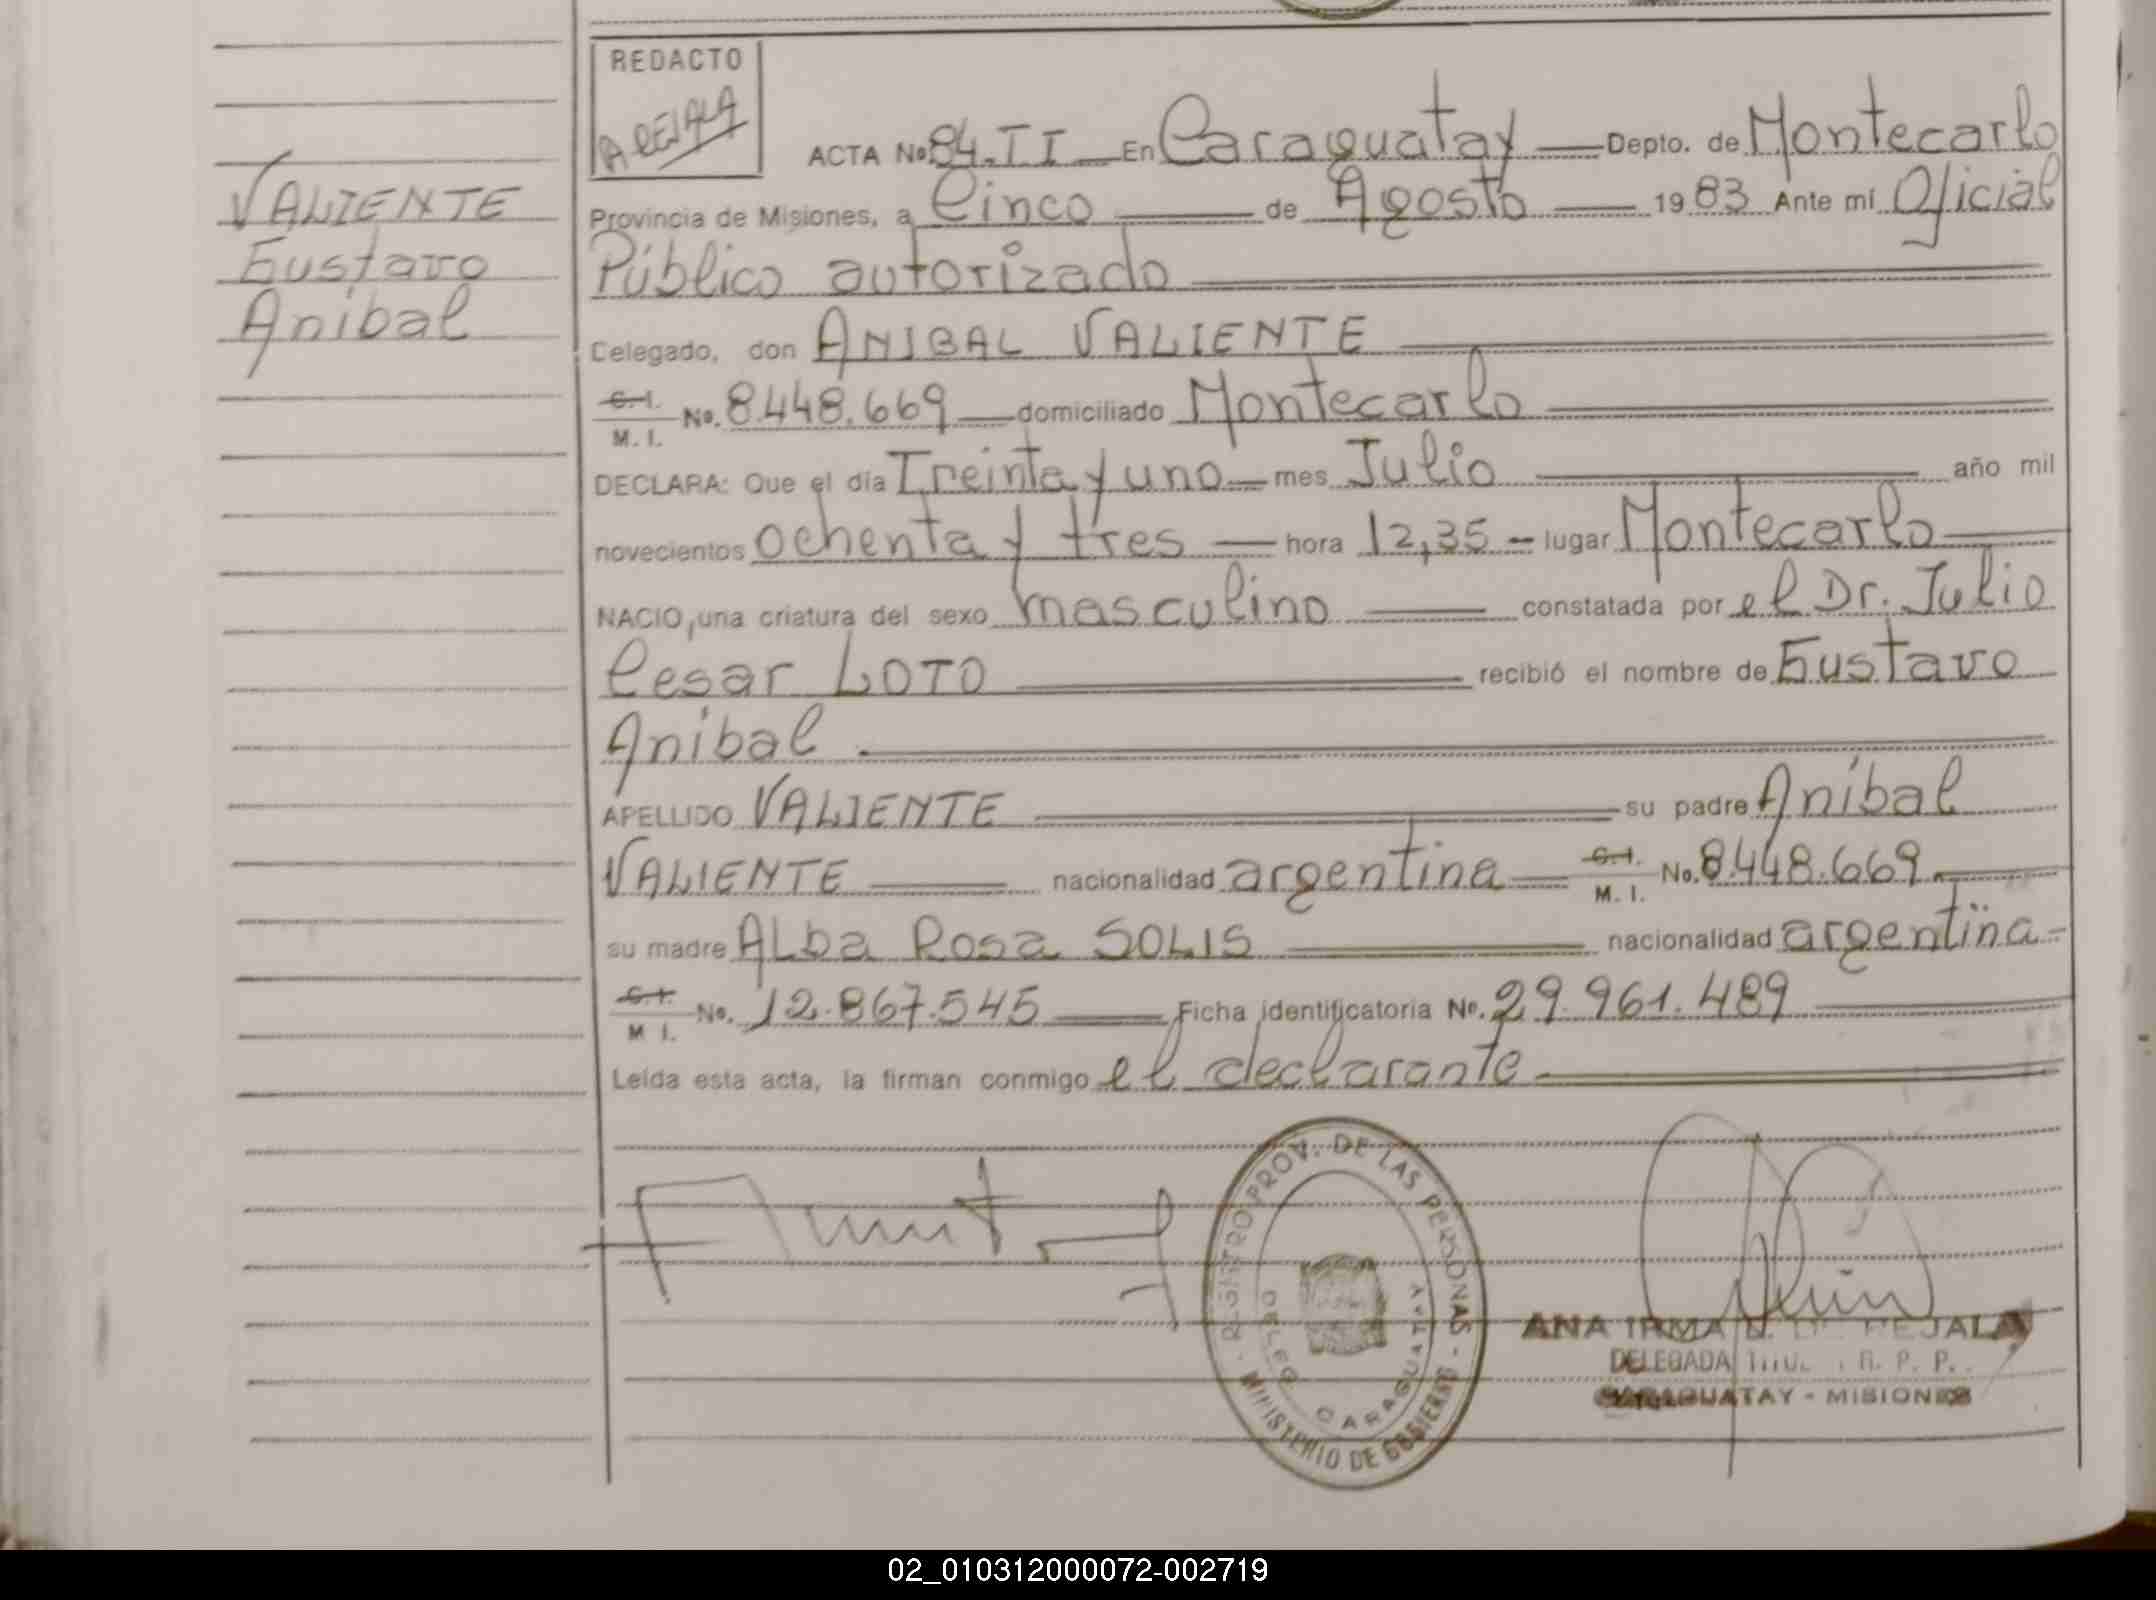 REDACTO
AREJALA
ACTA No 84.II En Caraguatay Depto. de Montecarlo
Provincia de Misiones, a Cinco de Agosto 1983 Ante mí Oficial
Público autorizado
Celegado, don ANIBAL VALIENTE
C.I.
M.I. No. 8.448.669 domiciliado Montecarlo
DECLARA: Que el día Treinta y uno mes Julio año mil
novecientos ochenta y tres hora 12,35 lugar Montecarlo
NACIO, una criatura del sexo masculino constatada por el Dr. Julio
Cesar LOTO recibió el nombre de Gustavo
Anibal
APELLIDO VALIENTE su padre Anibal
VALIENTE nacionalidad argentina C.I.
M.I. No. 8.448.669
su madre Alba Rosa SOLIS nacionalidad argentina
C.I.
M I. No. 12.867.545 Ficha identificatoria No. 29.961.489
Leída esta acta, la firman conmigo el declarante
VALIENTE
Gustavo
Anibal
REGISTRO PROV. DE LAS PERSONAS - MINISTERIO DE GOBIERNO -
DELEG. CARAGUATAY
ANA IRMA DE REJALA
DELEGADA R. P. P.
CARAGUATAY - MISIONES
02_010312000072-002719